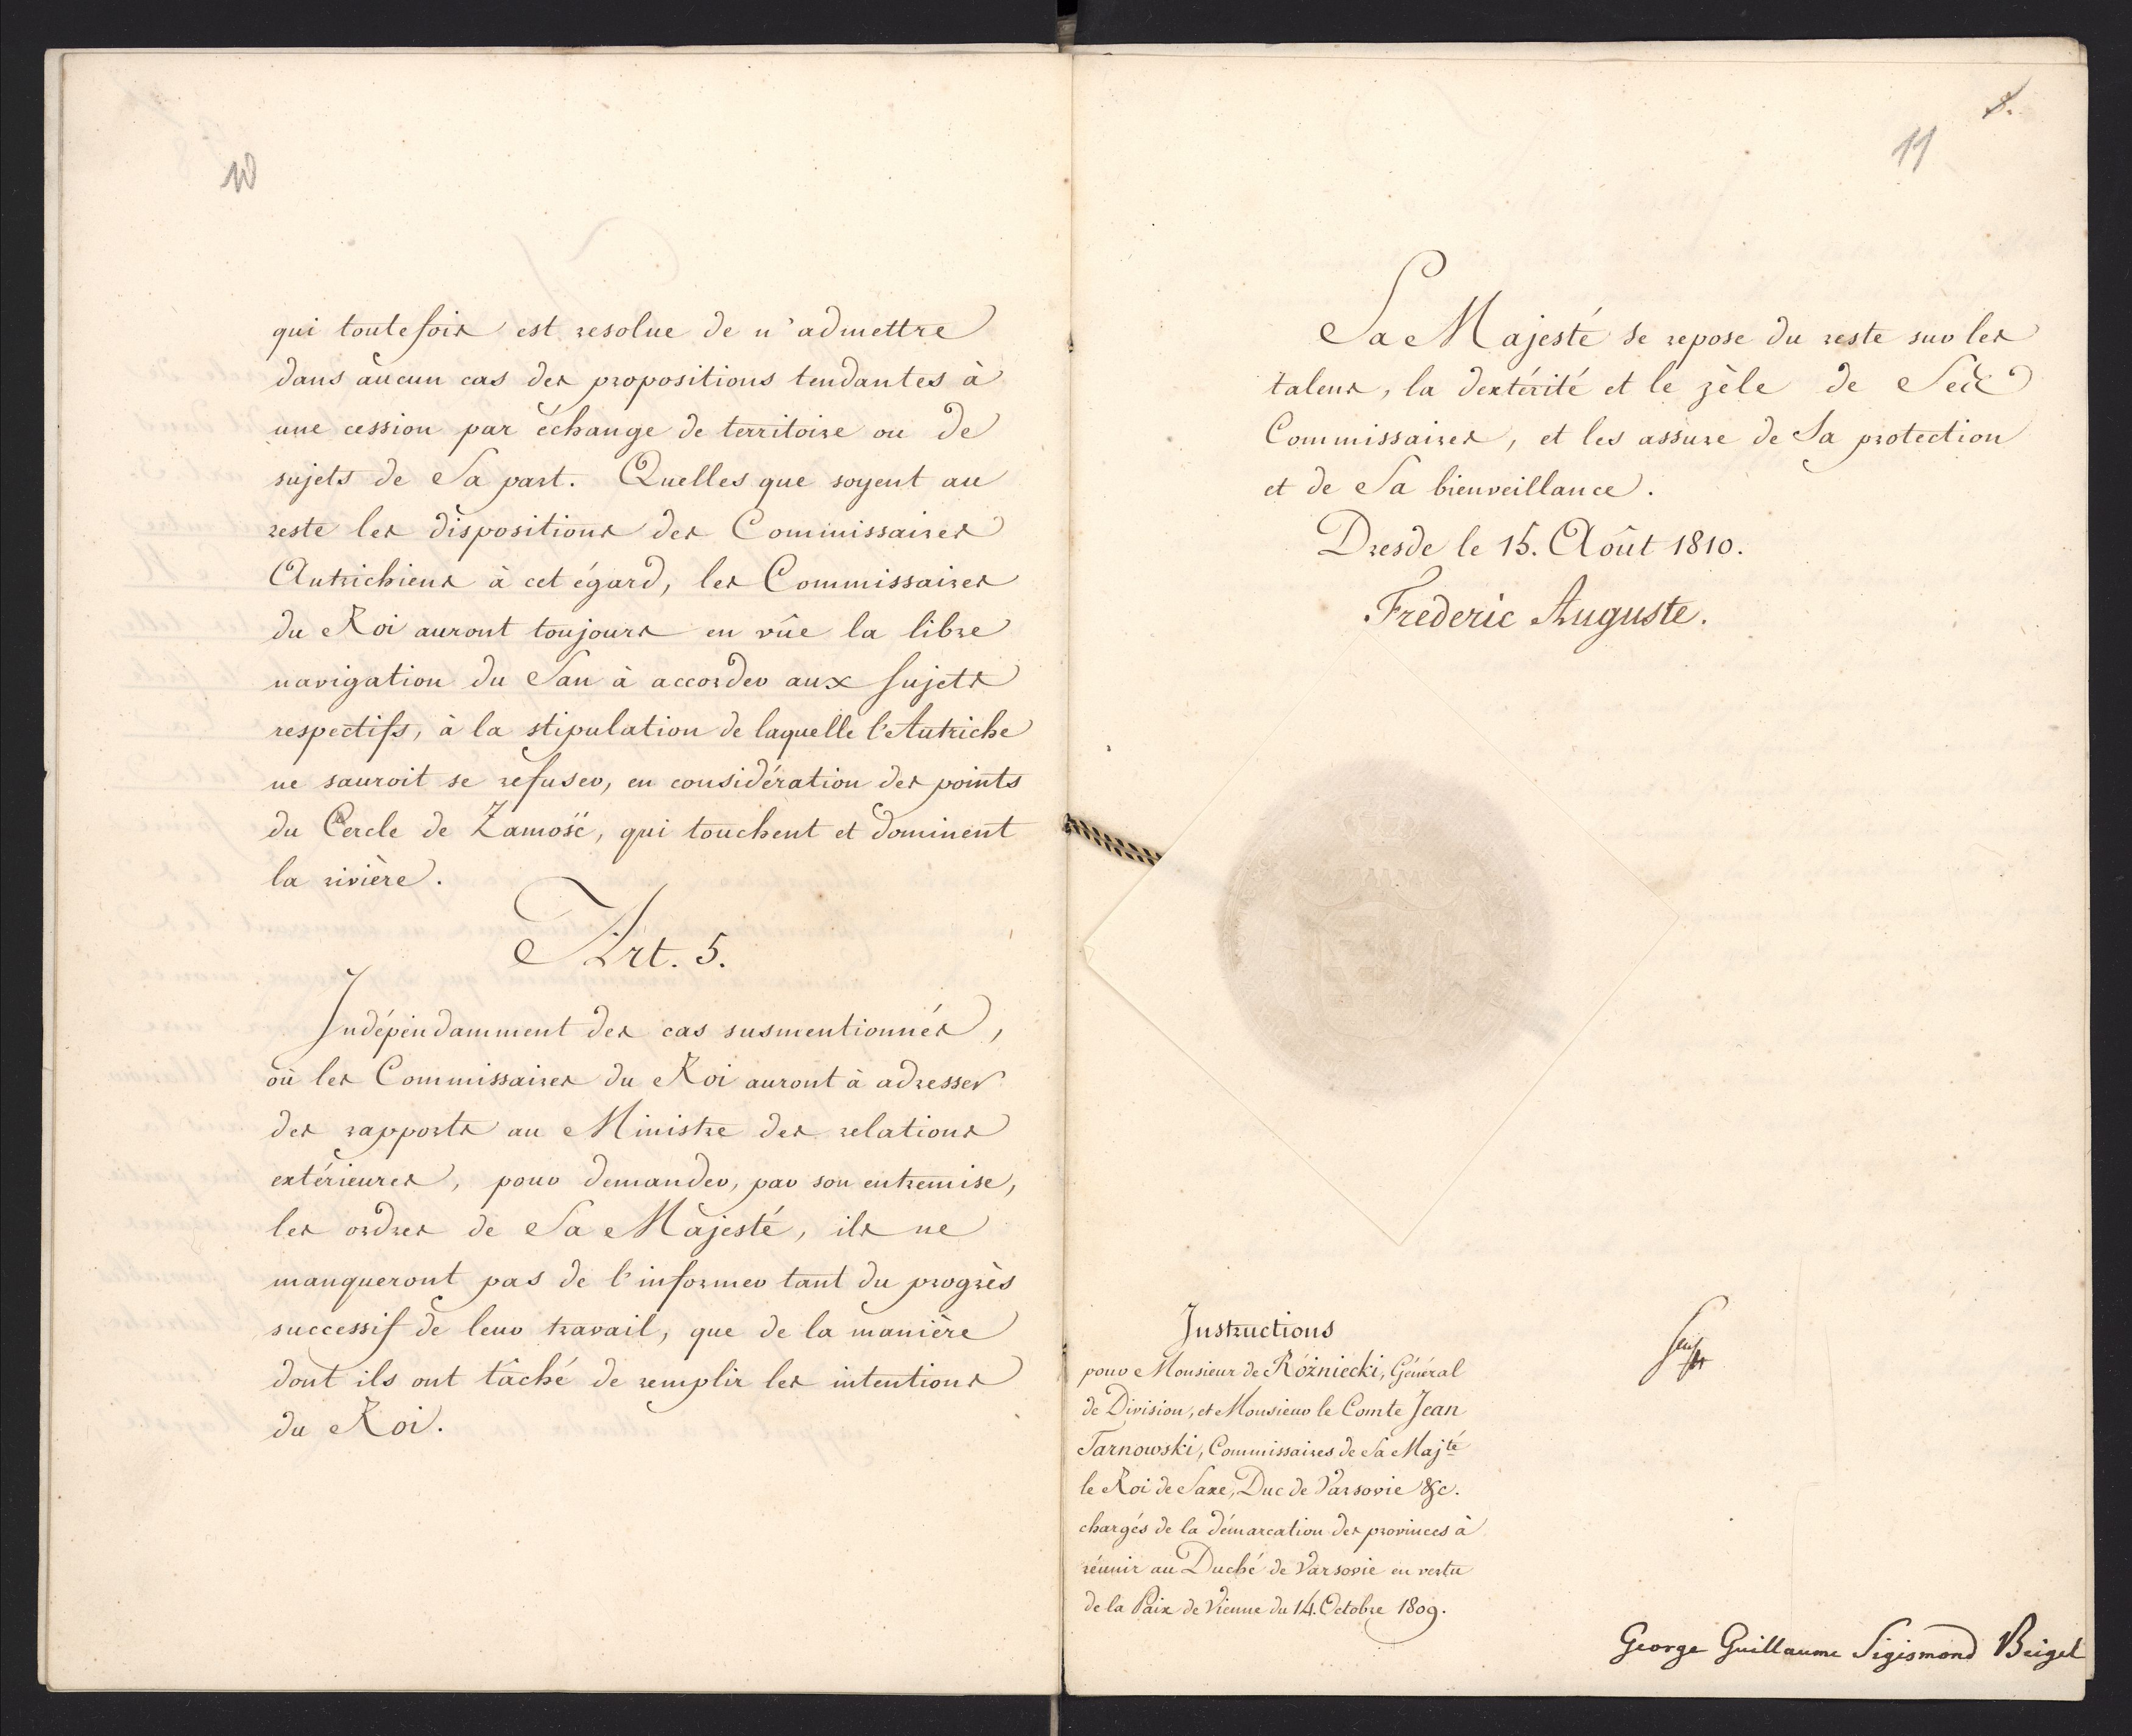 10
qui toutefois est resolue de n'admettre
dans aucun cas des propositions tendantes à
une cession par échange de territoire ou de
sujets de Sa part. Quelles que soyent au
reste les dispositions des Commissaires
Autrichiens à cet égard, les Commissaires
du Roi auront toujours en vûe la libre
navigation du San à accorder aux sujets
respectifs, à la stipulation de laquelle l'Autriche
ne sauroit se refuser, en considération des points
du Cercle de Zamość, qui touchent et dominent
la rivière.
Art. 5.
Indépendamment des cas susmentionnés,
où les Commissaires du Roi auront à adresser
des rapports au Ministre des relations
extérieures, pour demander, par son entremise,
les ordres de Sa Majesté, ils ne
manqueront pas de l'informer tant du progrès
successif de leur travail, que de la manière
dont ils ont tâché de remplir les intentions
du Roi.
8.
11
Sa Majesté se repose du reste sur les
talens, la dextérité et le zèle de Ses
Commissaires, et les assure de Sa protection
et de Sa bienveillance.
Dresde le 15. Août 1810.
Frédéric Auguste.
Instructions
pour Monsieur de Różniecki, Général
de Division, et Monsieur le Comte Jean
Tarnowski, Commissaires de Sa Majté
le Roi de Saxe, Duc de Varsovie &c.
chargés de la démarcation des provinces à
réunir au Duché de Varsovie en vertu
de la Paix de Vienne du 14. Octobre 1809.
George Guillaume Sigismond Beigel